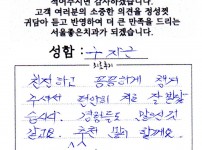 적어주시면 감사하겠습니다.
고객 여러분의 소중한 의견을 정성껏
귀담아 듣고 반영하여 더 큰 만족을 드리는
서울좋은치과가 되겠습니다.
성함 :
친절하고 꼼꼼하게 챙겨
주셔서 편안히 치료 잘 받았
습니다.
많이 할게요.